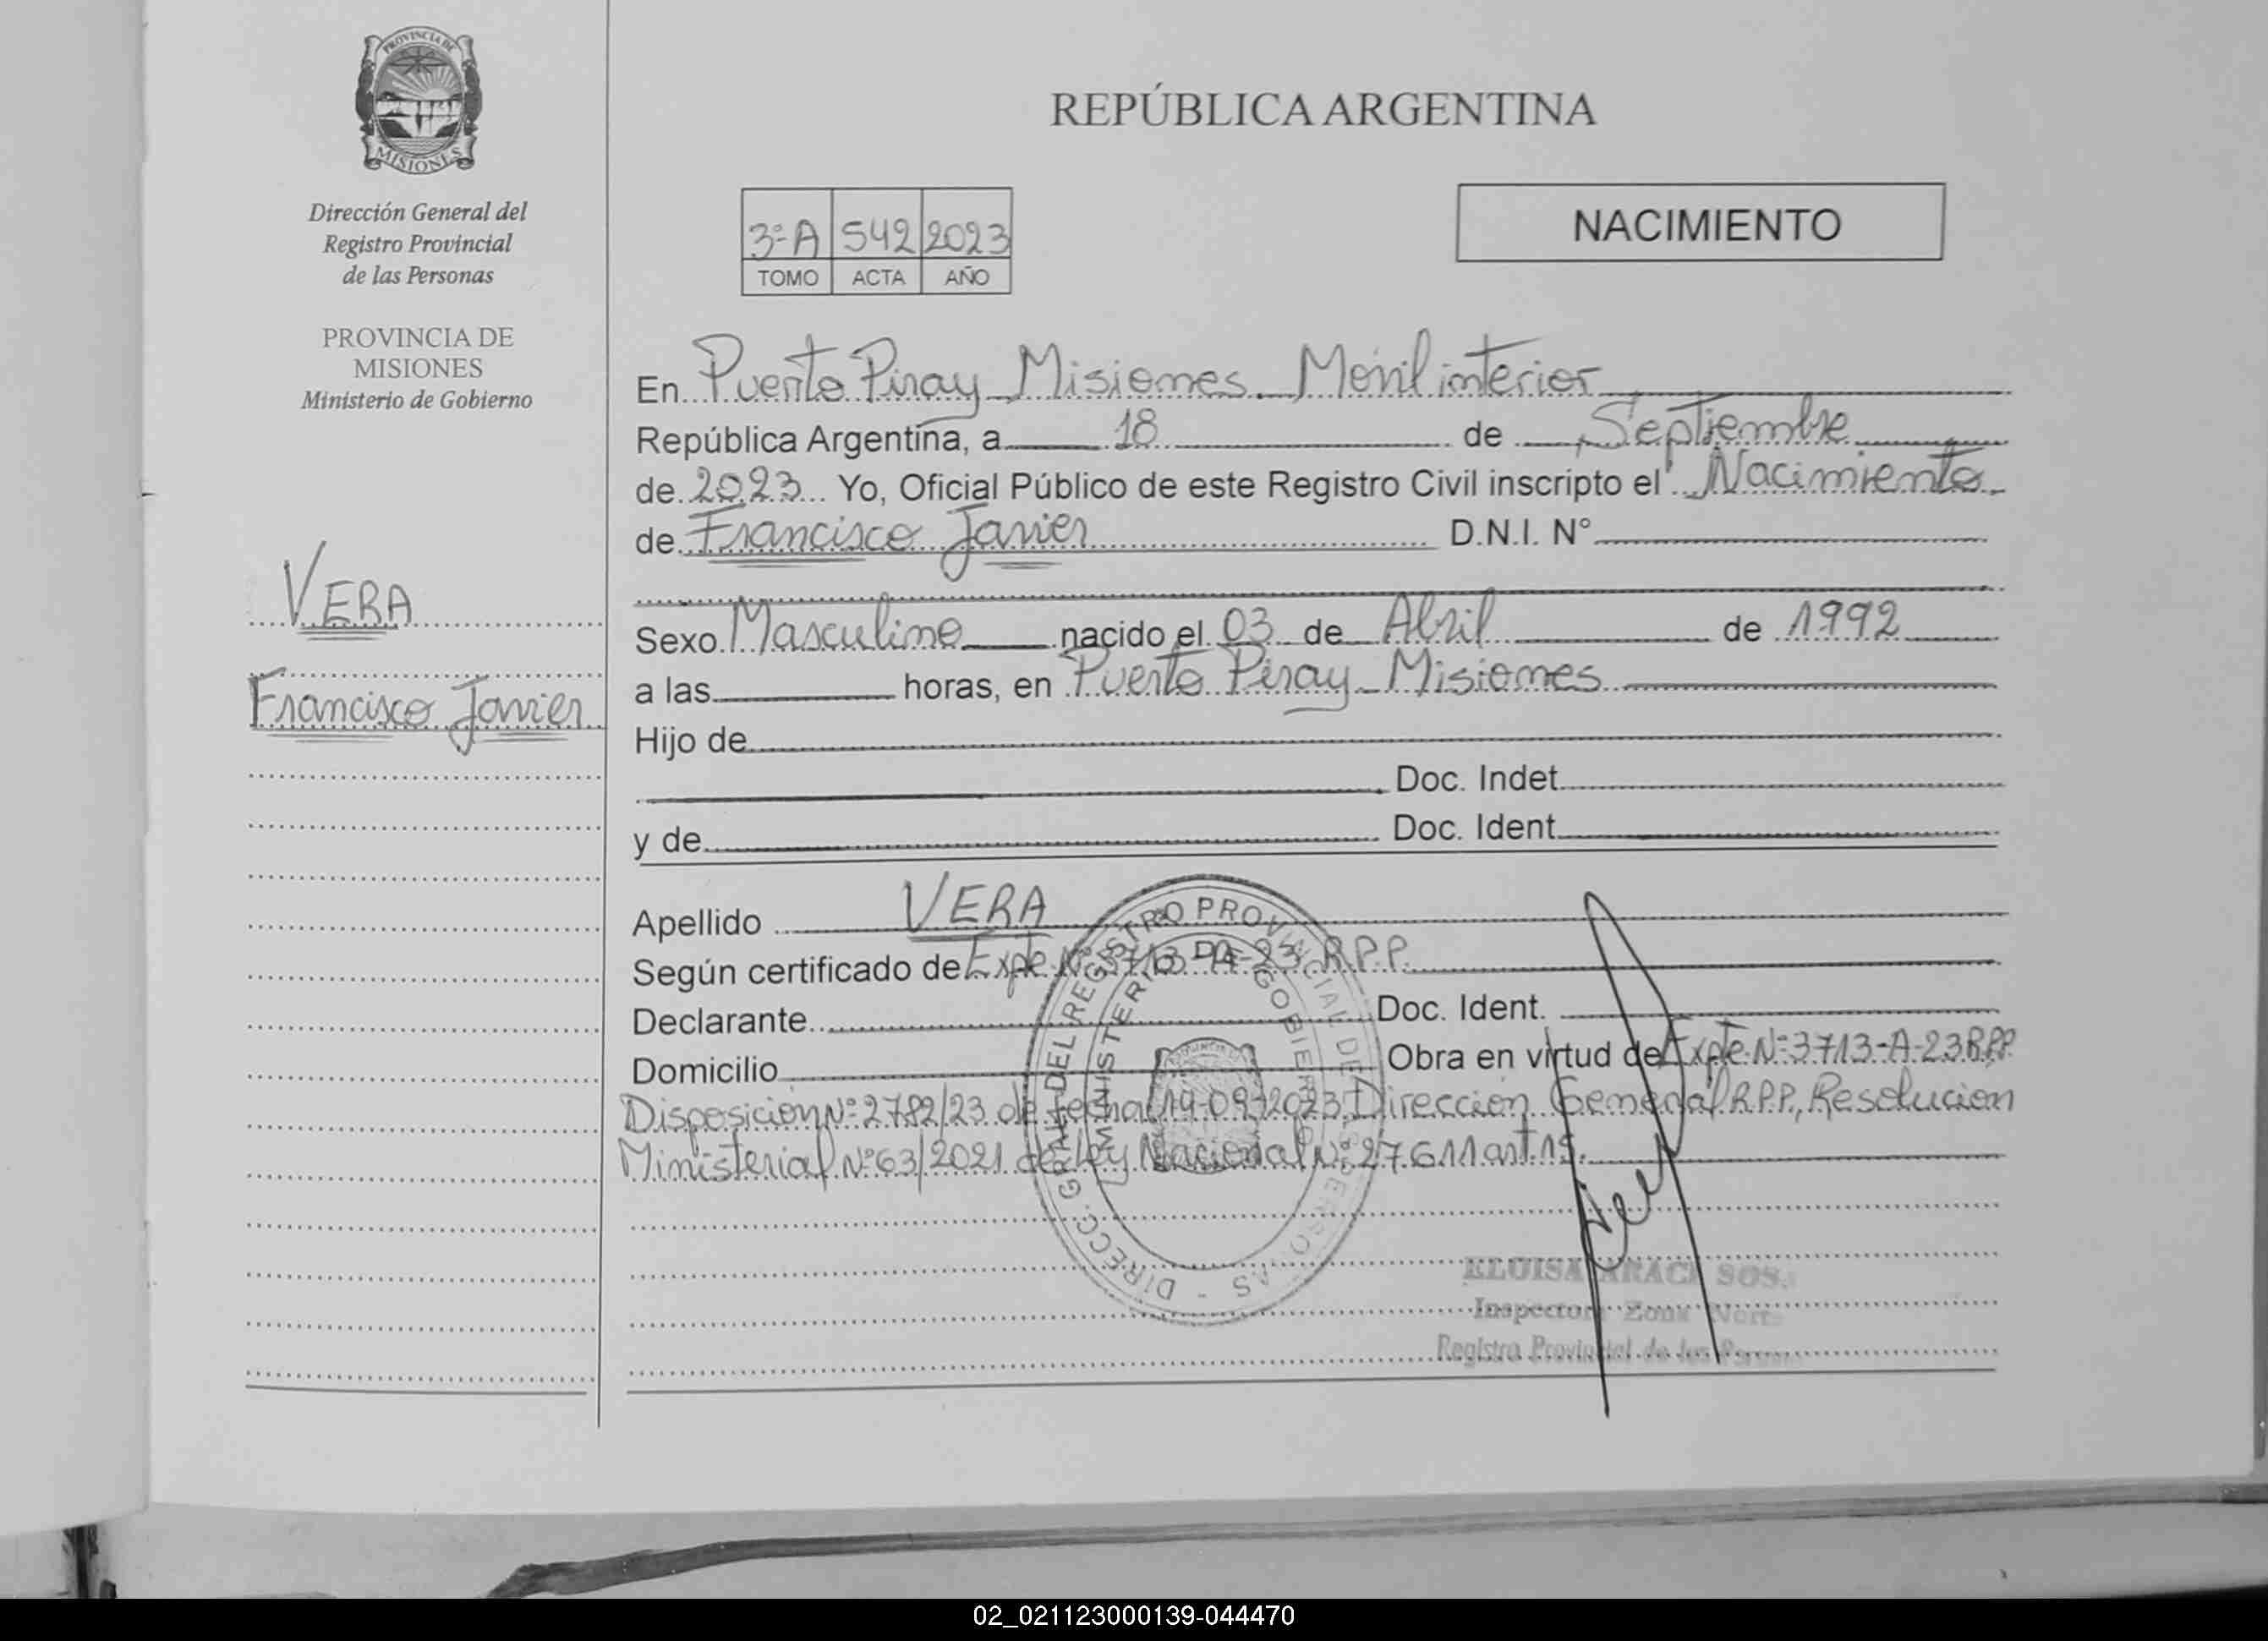 PROVINCIA DE
MISIONES
Dirección General del
Registro Provincial
de las Personas
PROVINCIA DE
MISIONES
Ministerio de Gobierno
VERA
Francisco Javier
REPÚBLICA ARGENTINA
3º A 542 2023
TOMO ACTA AÑO
NACIMIENTO
En Puerto Piray Misiones. Movil interior
República Argentina, a 18 de Septiembre
de 2023 Yo, Oficial Público de este Registro Civil inscripto el Nacimiento
de Francisco Javier D.N.I. N°
Sexo Masculino nacido el 03 de Abril de 1992
a las horas, en Puerto Piray - Misiones
Hijo de
Doc. Indet.
y de Doc. Ident.
Apellido VERA
Según certificado de Expte Nº 3713-A-23 R.P.P.
Declarante Doc. Ident.
Domicilio Obra en virtud de Expte. Nº 3713-A-23 R.P.P.
Disposición Nº 2782/23 de fecha 14-09-2023 Dirección General R.P.P, Resolucion
Ministerial Nº 63/2021 de Ley Nacional Nº 27611 art. 15.
DIRECC. GRAL. DEL REGISTRO PROVINCIAL DE LAS PERSONAS -
MINISTERIO DE GOBIERNO
ELOISA ARACI SOS
Inspectora Zona Norte
Registro Provincial de las Personas
02_021123000139-044470